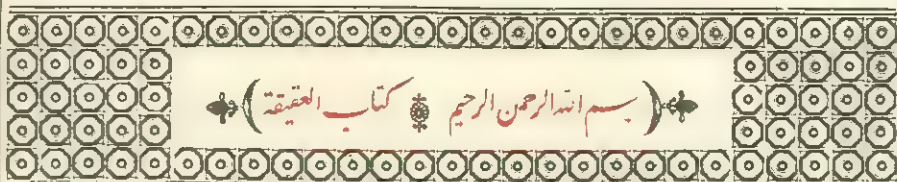 بسم الله الرحمن الرحيم كتاب العقيقة